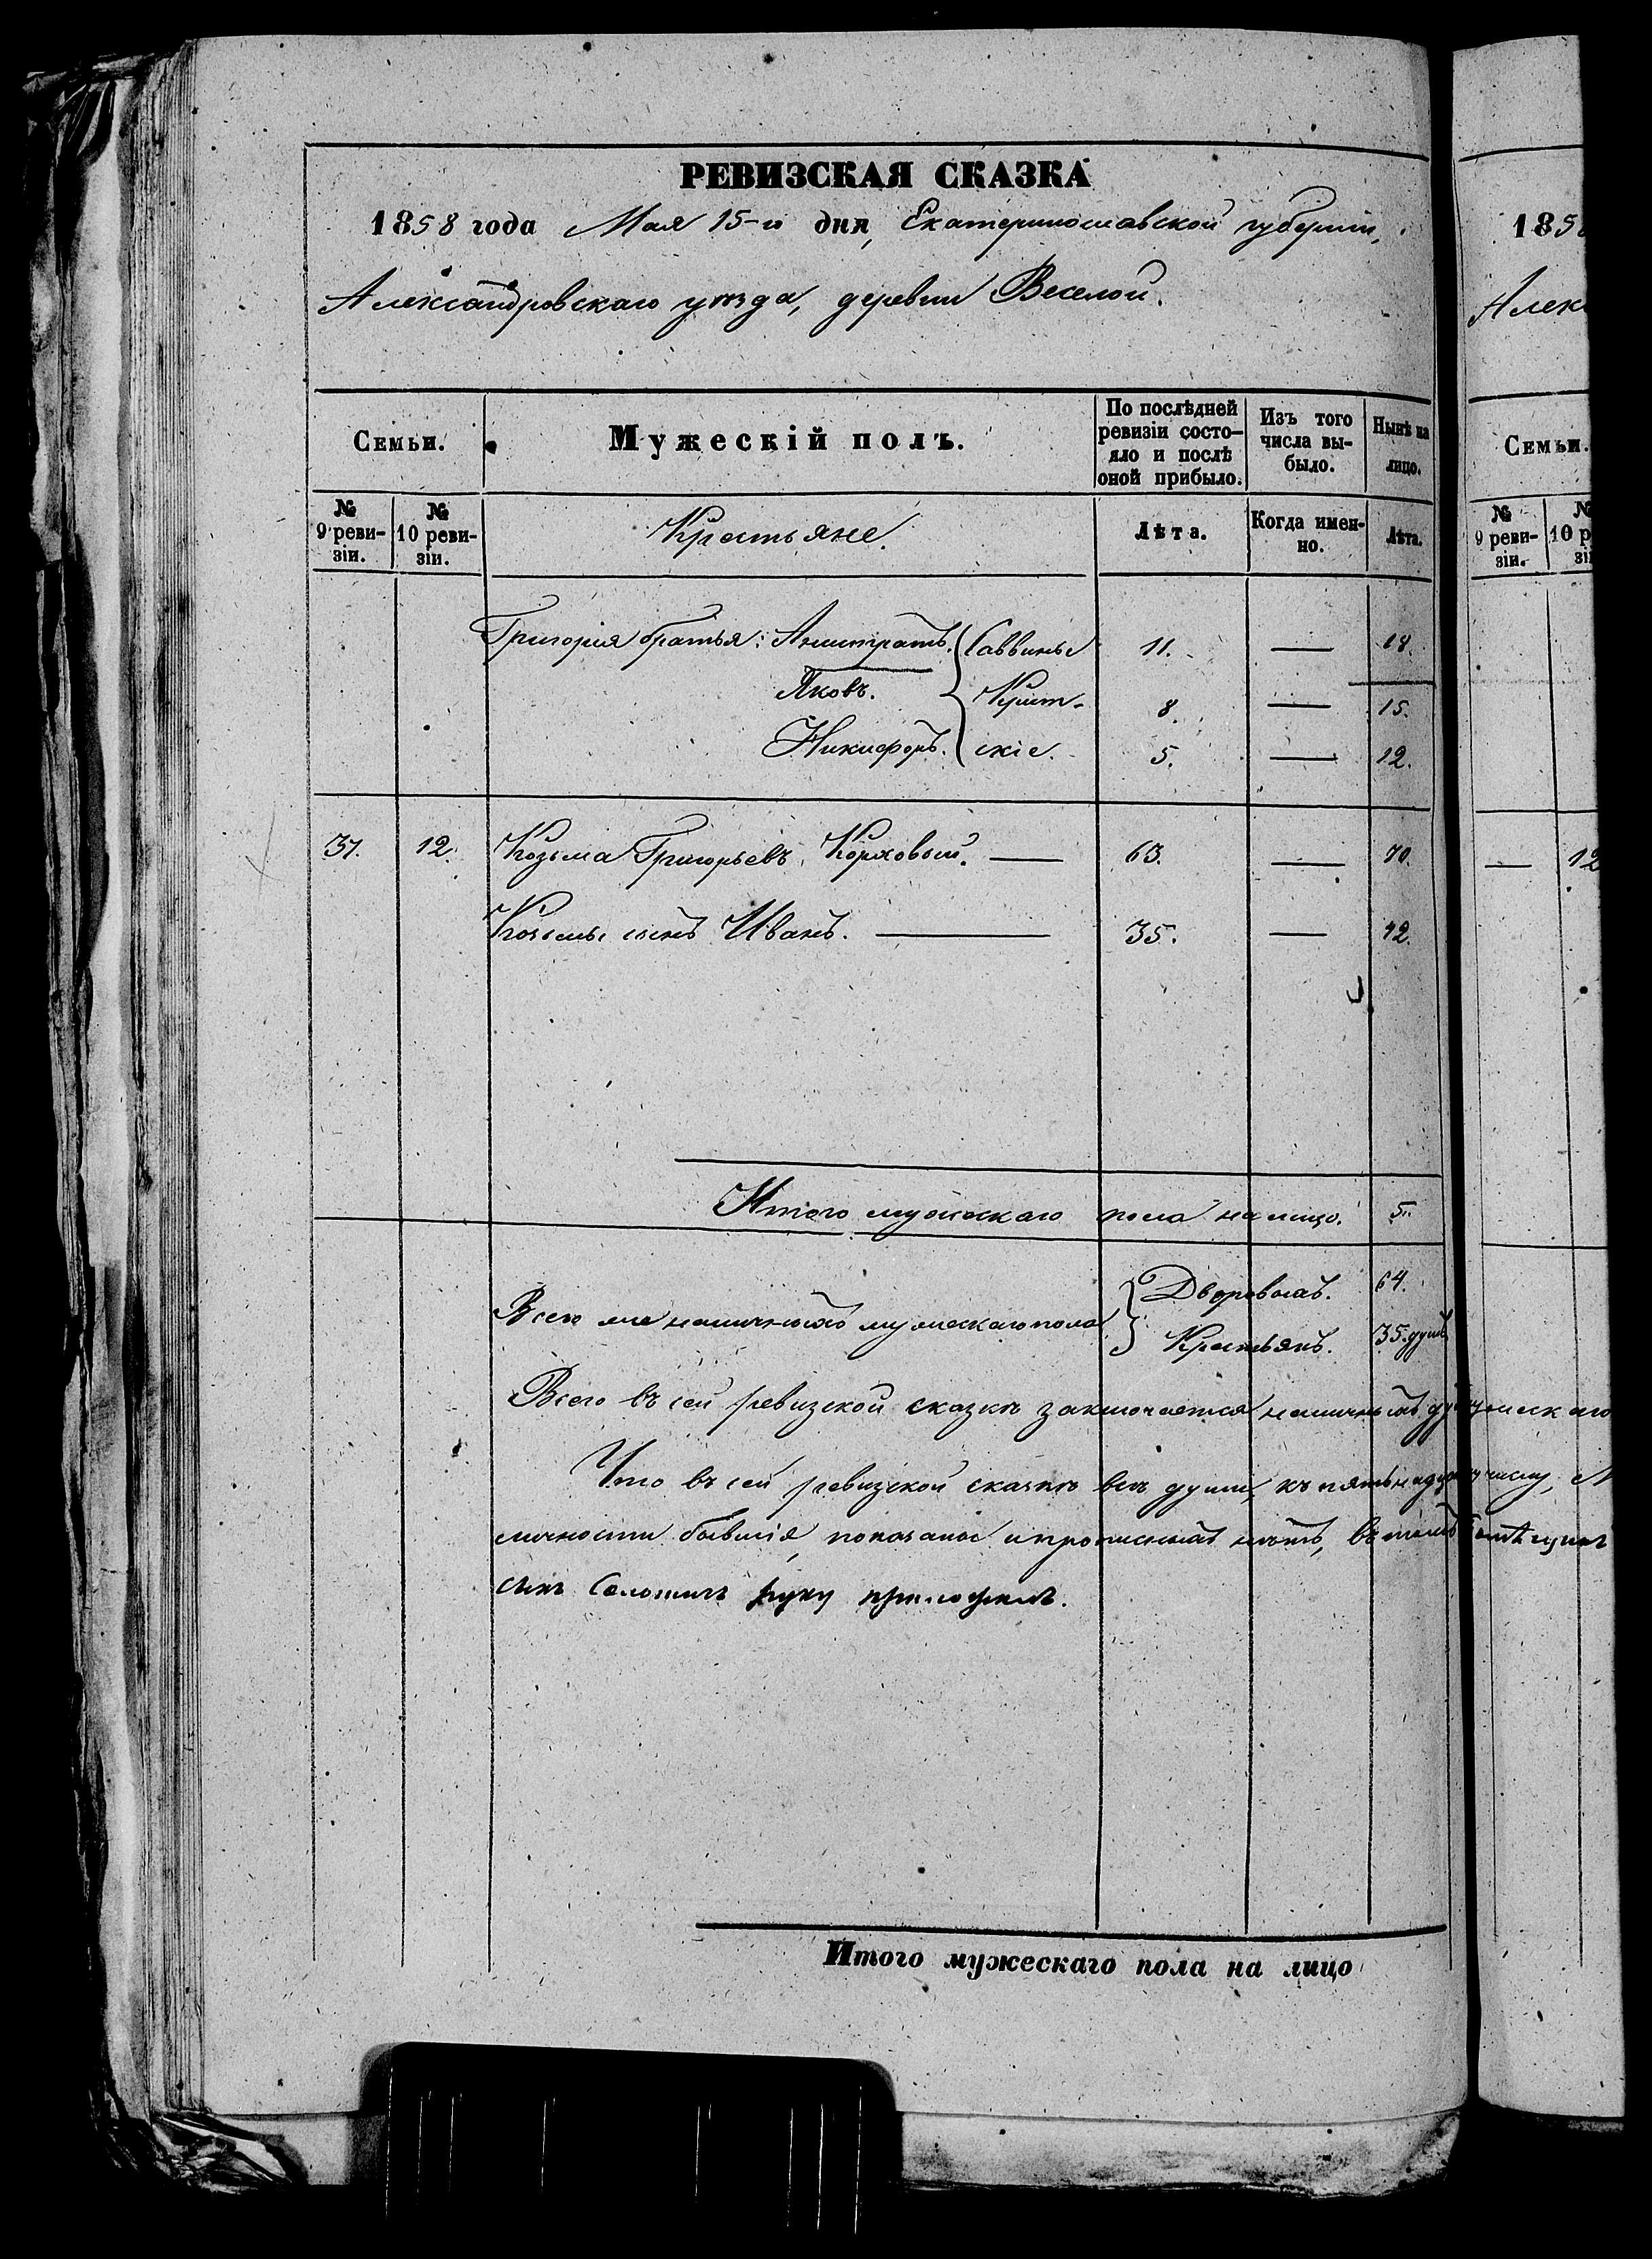 РЕВИЗСКАЯ СКАЗКА
1858 года Мая 15-го дня, Екатеринославской губерніи,
Александровскаго уѣзда, деревни Веселой.
Семьи.
Мужескій полъ.
По послѣдней ревизіи состо-
яло и послѣ
оной прибыло.
Изъ того
числа вы-
было.
Нынѣ на
лицо.
№
9 реви-
зіи.
№
10 реви-
зіи.
Крестьяне.
Лѣта.
Когда имен-
но.
Лѣта.
Григорія братья: Саввины 11. — 18.
Яковъ. 8. — 15.
Никифоръ. скіе. 5. — 12.
37. 12. Козьма Григорьевъ Коржовый. — 63. — 70.
Козьмы сынъ Иванъ. — 35. — 42.
Итого мужескаго пола на лицо. 5.
Дворовыхъ. 64.
Всего же наличныхъ мужескаго пола
Крестьянъ. 35. душъ
Всего въ сей ревизской сказкѣ заключается наличныхъ
Что въ сей ревизской сказкѣ всѣ души, къ числу,
личности бывшія, показаны и прописныхъ нѣтъ, въ томъ
сынъ руку приложилъ.
Итого мужескаго пола на лицо
185
Алек
Семьи.
№
9 реви-
зіи.
№
10 р
зі
— 12